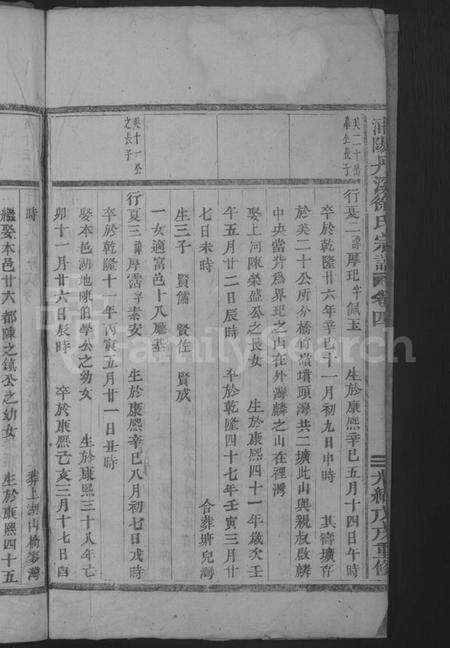 浦陽大溪徐氏宗譜 卷四 光緒戊戌重修
行夏二諱厚玘字佩玉 生於康熙辛巳五月十四日午時
卒於乾隆廿六年辛巳十一月初九日申時 其壽壙存
於美二十公所分橋
墳頭灣共二壙此山與親叔啟麟
中央當背為界玘之山在外灣麟之山在裡灣
娶上河陳榮盛公之長女 生於康熙四十一年歲次壬
午五月廿二日辰時 卒於乾隆四十七年壬寅三月廿
七日未時 合葬塘兒灣
生三子 賢儒 賢佐 賢成
一女適富邑十八
英十一公之長子
行夏三諱厚
字秦安 生於康熙辛巳八月初七日戌時
卒於乾隆十一年丙寅五月廿一日丑時
娶本邑湖地陳
學公之幼女 生於康熙三十八年己
卯十一月廿六日辰時 卒於康熙己亥三月十七日酉
時 葬上湖山橋
灣
繼娶本邑廿六都陳之鎮公之幼女 生於康熙四十五
FamilySearch